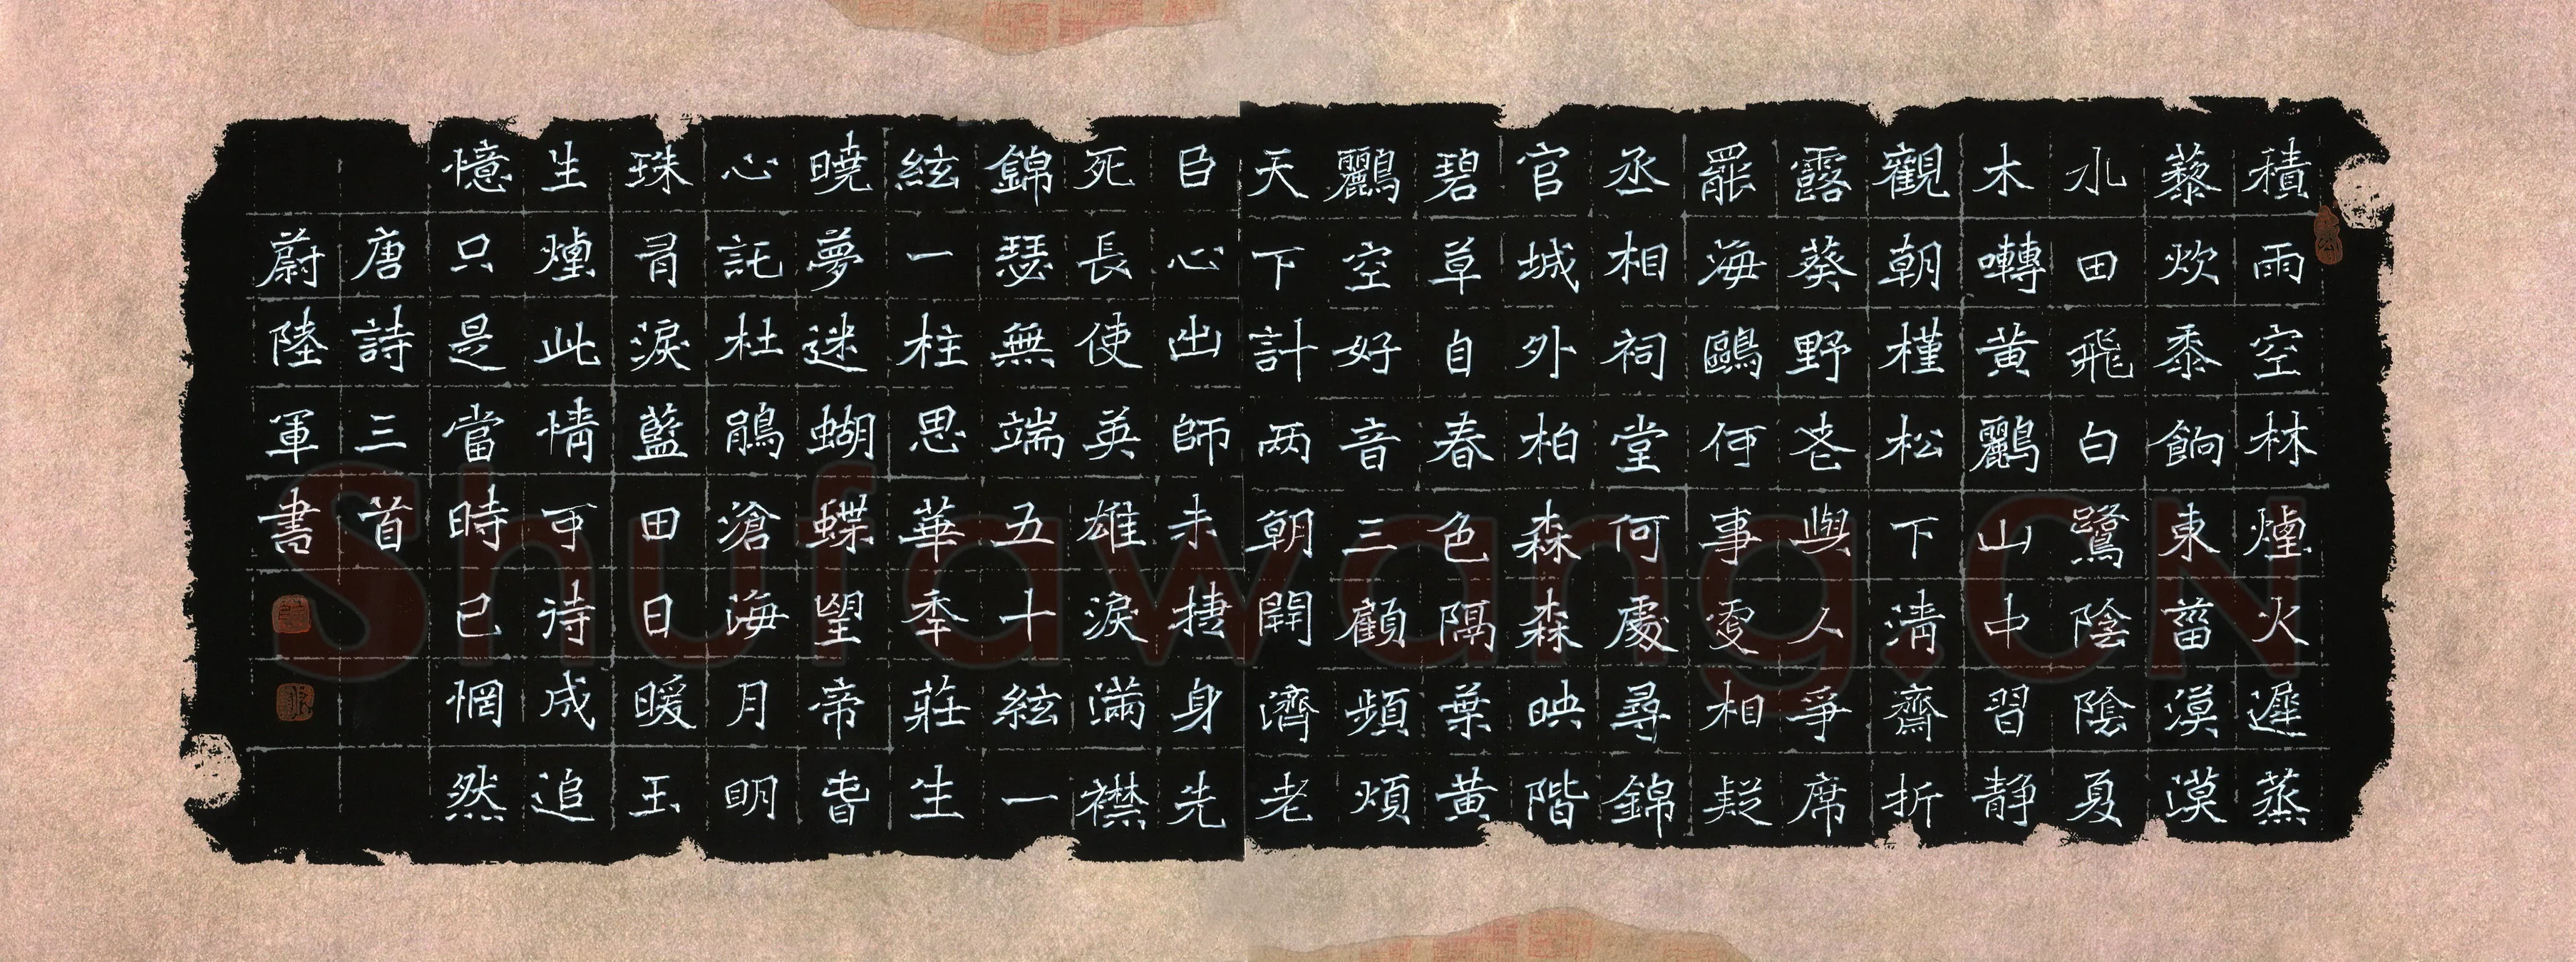 積雨空林煙火遲蒸
藜炊黍餉東菑漠漠
水田飛白鷺陰陰夏
木囀黃鸝山中習靜
觀朝槿松下清齋折
露葵野老與人爭席
罷海鷗何事更相疑
丞相祠堂何處尋錦
官城外柏森森映階
碧草自春色隔葉黃
鸝空好音三顧頻煩
天下計两朝開濟老
臣心出師未捷身先
死長使英雄淚滿襟
錦瑟無端五十絃一
絃一柱思華年莊生
曉夢迷蝴蝶望帝春
心託杜鵑滄海月明
珠有淚藍田日暖玉
生煙此情可待成追
憶只是當時已惘然
唐詩三首
蔚陸軍書
Shufawang.CN